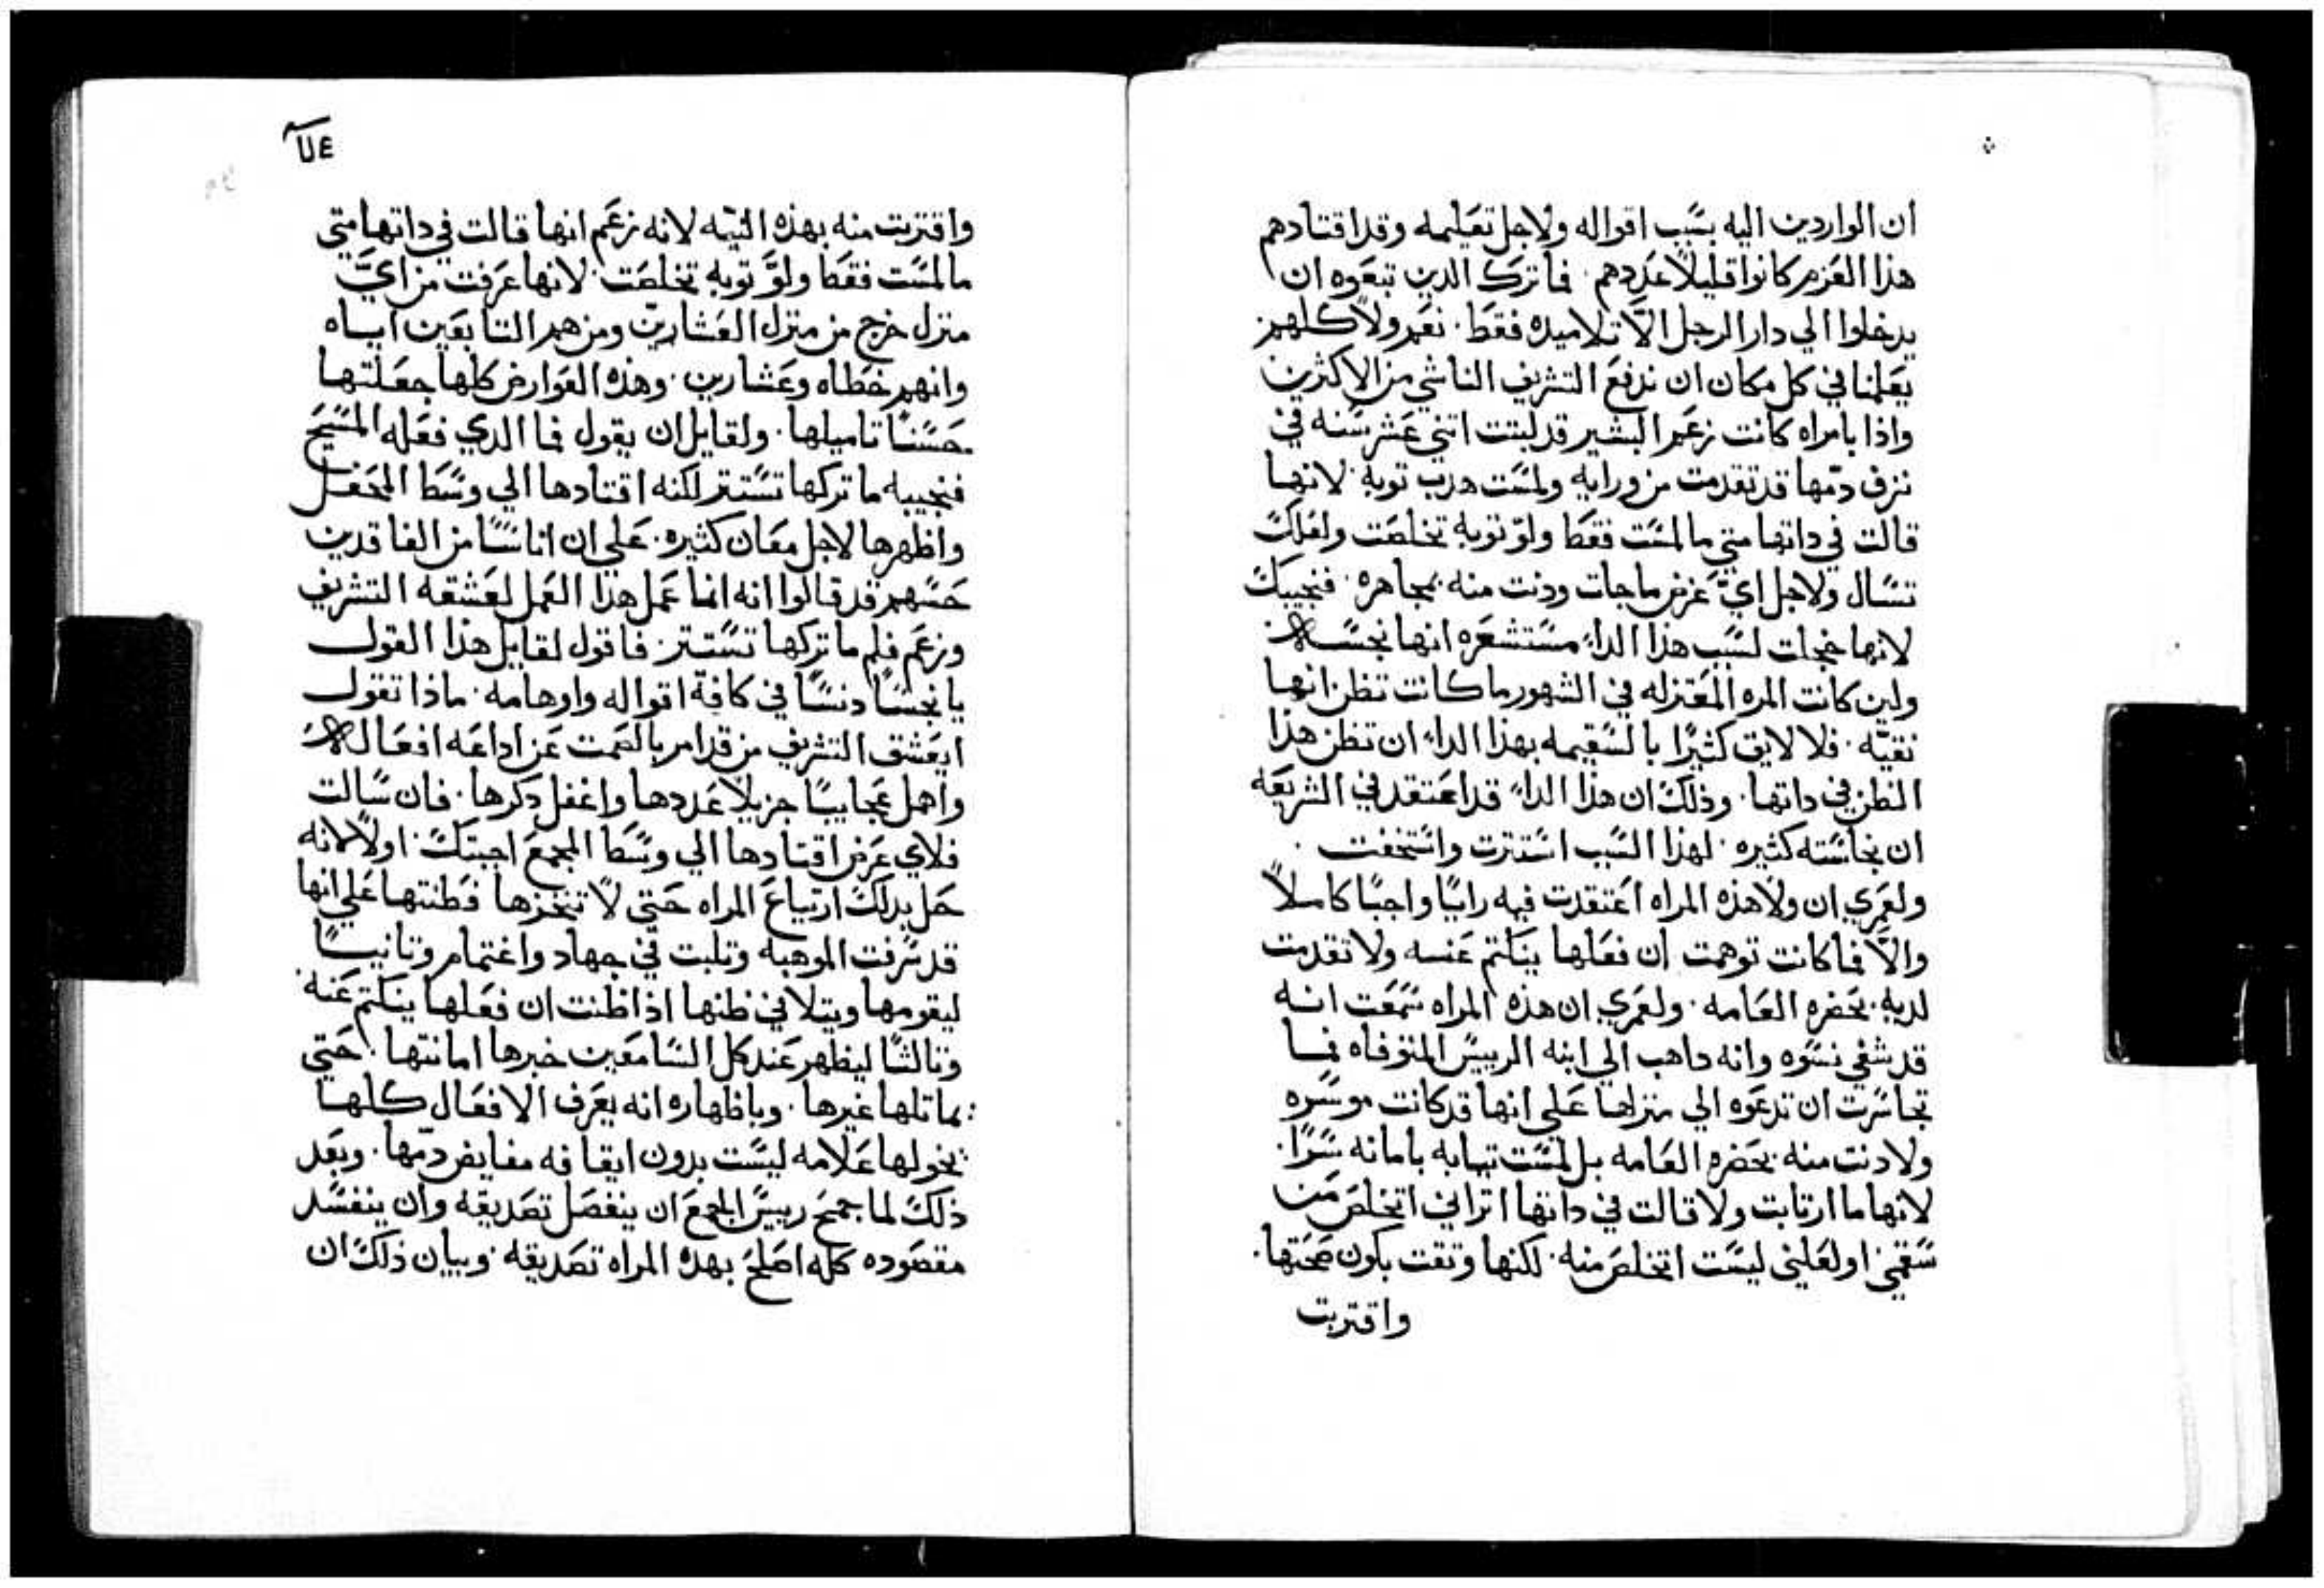 ان الواردين اليه بسبب اقواله ولاجل تعليمه وقد اقتادهم
هذا العزم كانوا قليلاً عددهم. فما ترك الدين تبعوه ان
يدخلوا الي دار الرجل الاَّ تلاميده فقط. نعم ولا كلهم
يعلمنا في كل مكان ان ندفع التشريف الناشي من الاكثرين
واذا بامراه كانت زعم البشير قد لبتت اتني عشر سنه في
نزف دمّها قد تقدمت من ورايه ولمست هدب توبه. لانها
قالت في داتها متي ما لمست فقط ولوّ توبه تخلصت ولعلك
تسال ولاجل ايّ غرض ما جات ودنت منه بمجاهره. فنجيبك
لانها خجلت لسبب هذا الداء مستشعره انها نجسه
ولين كانت المره المعتزله في الشهور ما كانت تظن انها
نقيّه. فلا لايق كثيرًا بالسقيمه بهذا الداء ان تظن هذا
الظن في داتها. وذلك ان هذا الداء قد اعتقد في الشريعه
ان نجاسته كثيره. لهذا السبب استترت واستخفت.
ولعمري ان ولا هذه المراه اعتقدت فيه رايًا واجبًا كاملاً
والاَّ فما كانت توهمت ان فعلها ينكتم عنه ولا تقدمت
لديه بحضره العامه. ولعمري ان هذه المراه سمعت انه
قد شفي نسوه وانه داهب الي ابنه الرييس المتوفاه فما
تجاسرت ان تدعوه الي منزلها علي انها قد كانت موسره
ولا دنت منه بحضره العامه بل لمست تيابه بامانه سرًا.
لانها ما ارتابت ولا قالت في داتها اتراني اتخلص من
سقمي او لعلني ليست اتخلص منه. لكنها وتقت بكون صحتها.
واقتربت
واقتربت منه بهذه النيّه لانه زعم انها قالت في داتها متي
ما لمست فقط ولوَّ توبه تخلصت. لانها عرفت من ايَّ
منزل خرج من منزل العشارين ومن هم التابعين اياه
وانهم خطاه وعشارين. وهذه العوارض كلها جعلتها
حسنًا تاميلها. ولقايل ان يقول فما الدي فعله المسيح
فنجيبه ما تركها تستتر لكنه اقتادها الي وسط المحفل
واظهرها لاجل معان كثيره. علي ان اناسًا من الفاقدين
حسهم قد قالوا انه انما عمل هذا العمل لعشقه التشريف
وزعم فلم ما تركها تستتر. فاقول لقايل هذا القول
يا نجسًا دنسًا في كافة اقواله واوهامه. ماذا تقول
ايعشق التشريف من قد امر بالصمت عن اداعه افعاله
واهمل عجايبًا جزيلاً عددها واغفل دكرها. فان سالت
فلاي غرض اقتادها الي وسط المجمع اجبتك. اولاً لانه
حل بدلك ارتياع المراه حتي لا تنخزها فطنتها علي انها
قد سرقت الموهبه وتلبت في جهاد واغتمام وتانيًا
ليقومها ويتلافي ظنها اذ اظنت ان فعلها ينكتم عنه.
وتالثًا ليظهر عند كل السامعين خبرها امانتها. حتي
يماتلها غيرها. وباظهاره انه يعرف الافعال كلها
يخولها علامه ليست بدون ايقافه مفايض دمّها. وبعد
ذلك لما جمح رييس المجمع ان ينفصل تصديقه وان ينفسد
مقصوده كله اصلح بهده المراه تصديقه. وبيان ذلك ان